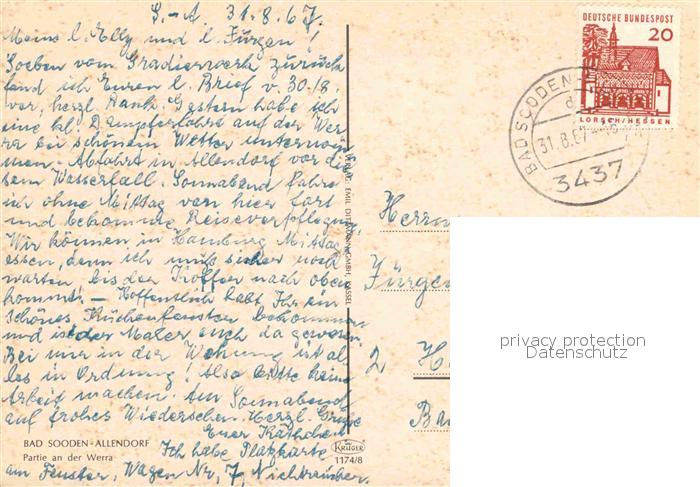 S.-A. 31.8.67.
Meine l. Elly und l. Jürgen!
Soeben vom Gradierwerk zurück
fand ich Euren l. Brief v. 30/8.
vor, herzl. Dank. Gestern habe ich
eine kl. Dampferfahrt auf der Wer-
ra bei schönem Wetter unternom-
men. Abfahrt in Allendorf vor die
sem Wasserfall. Sonnabend fahre
ich ohne Mittag von hier fort
und bekomme Reiseverpflegung.
Wir können in Hamburg Mittag
essen, denn ich muß sicher noch
warten, bis der Koffer nach oben
kommt! – Hoffentlich habt Ihr ein
schönes Küchenfenster bekommen
und ist der Maler auch da gewesen.
Bei mir in der Wohnung ist al
les in Ordnung! Also bitte keine
Arbeit machen. Am Sonnabend
auf frohes Wiedersehen. Herzl. Grüße
Eurer
Ich habe Platzkarte
am Fenster, Wagen Nr. 7, Nichtraucher.
BAD SOODEN-ALLENDORF
Partie an der Werra
KRÜGER
1174/8
VERLAG: EMIL DITTMANN GMBH, KASSEL
DEUTSCHE BUNDESPOST
20
LORSCH/HESSEN
BAD SOODEN-
d
31.8.67
3437
Herrn
Jürgen
2 H
Ba
privacy protection
Datenschutz